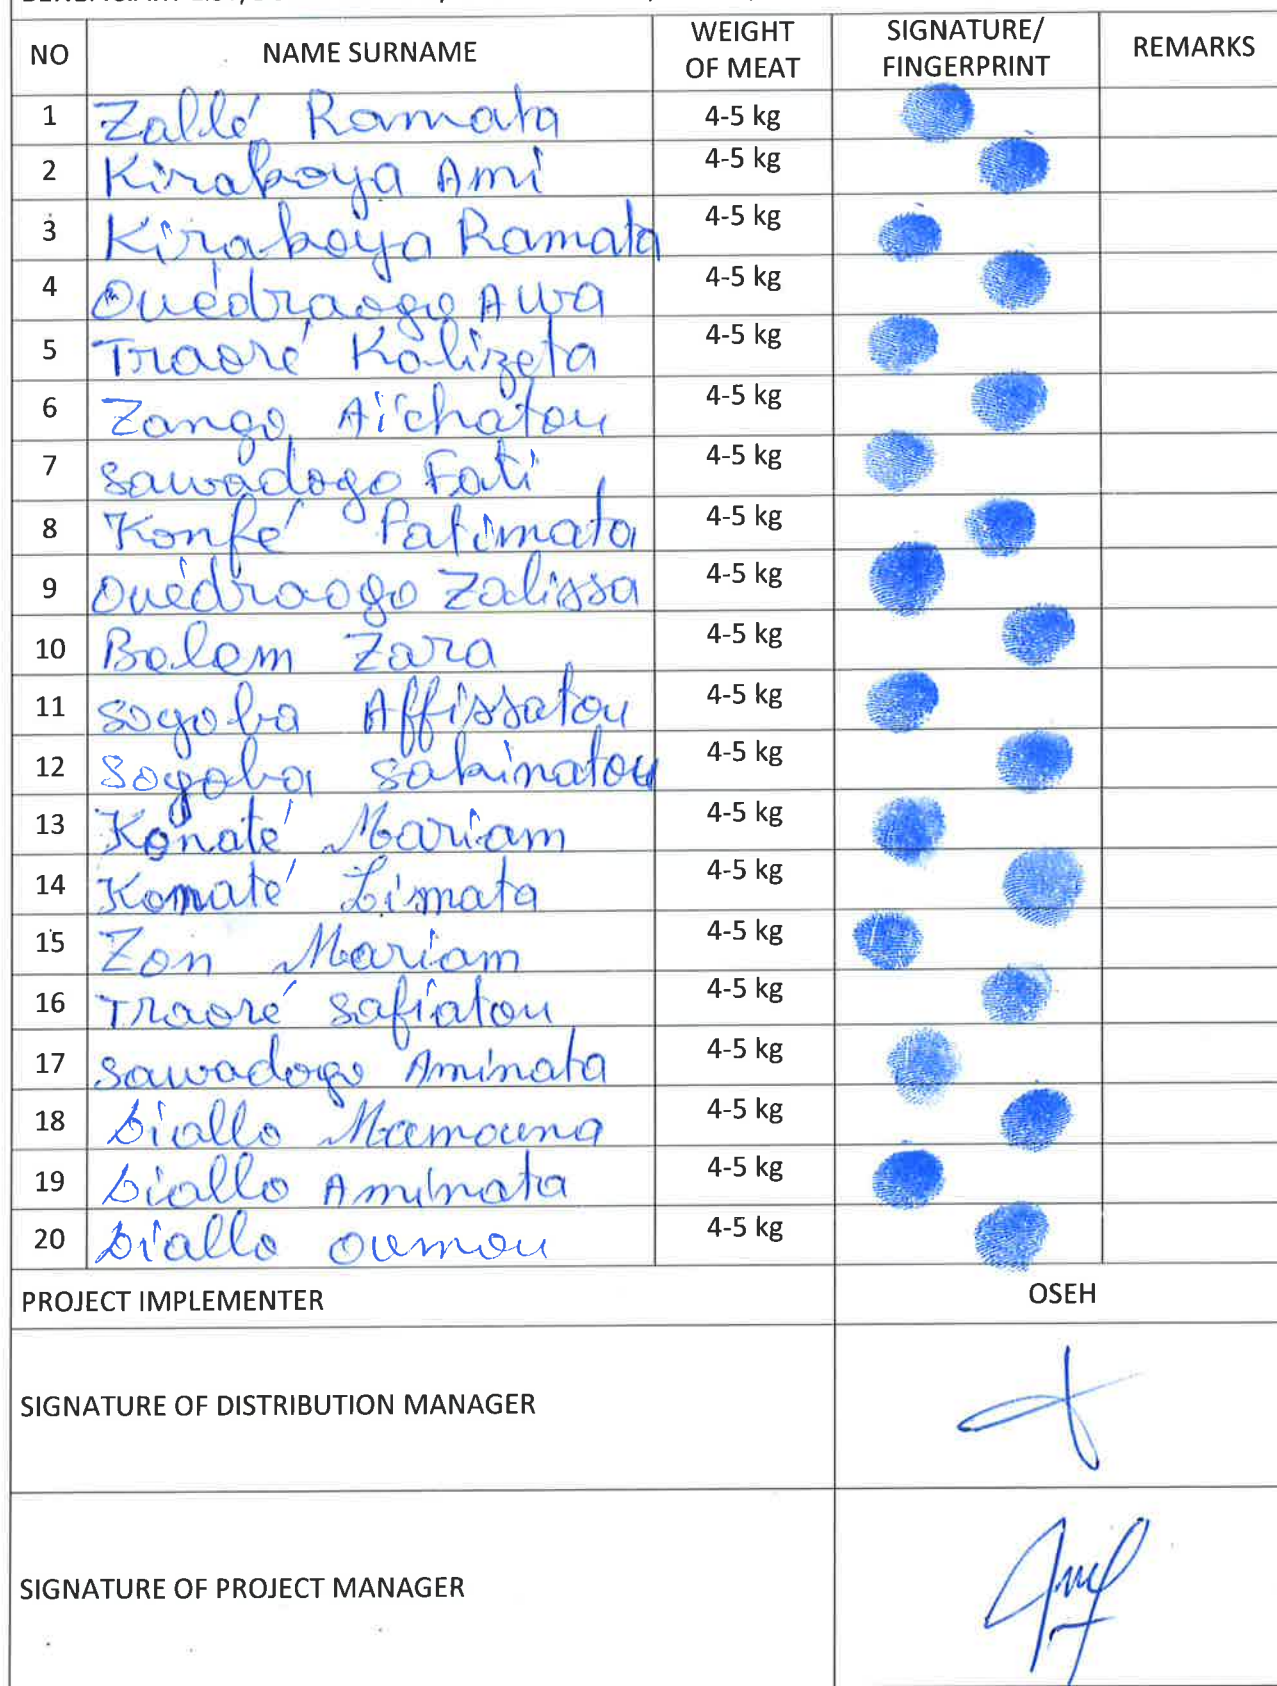 NO NAME SURNAME WEIGHT OF MEAT SIGNATURE/ FINGERPRINT REMARKS
1 Zallé Ramata 4-5 kg
2 Kiraboya Ami 4-5 kg
3 Kiraboya Ramata 4-5 kg
4 Ouédraogo Awa 4-5 kg
5 Traoré Kalizeta 4-5 kg
6 Zango Aïchatou 4-5 kg
7 sawadogo Fati 4-5 kg
8 Konfé Fatimata 4-5 kg
9 Ouédraogo Zalissa 4-5 kg
10 Belem Zara 4-5 kg
11 sogoba Affissatou 4-5 kg
12 Sogoba sakinatou 4-5 kg
13 Konaté Mariam 4-5 kg
14 Komaté 4-5 kg
15 Zon Mariam 4-5 kg
16 Traoré safiatou 4-5 kg
17 sawadogo Aminata 4-5 kg
18 Diallo Mamouna 4-5 kg
19 Diallo Aminata 4-5 kg
20 Diallo oumou 4-5 kg
PROJECT IMPLEMENTER OSEH
SIGNATURE OF DISTRIBUTION MANAGER
SIGNATURE OF PROJECT MANAGER